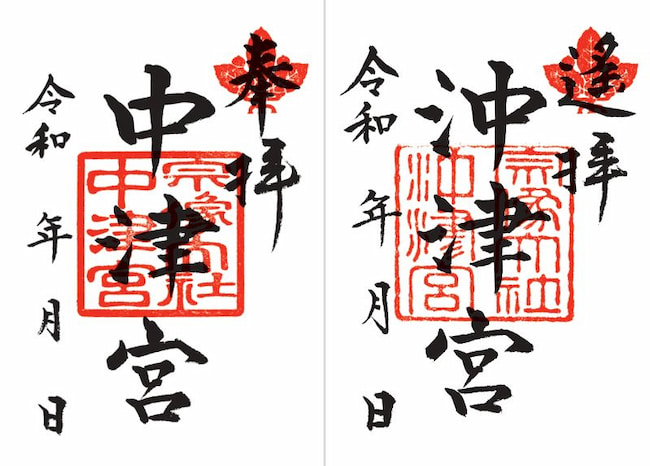 奉拝
宗像大社
中津宮
中津宮
令和 年 月 日
遥拝
宗像大社
沖津宮
沖津宮
令和 年 月 日